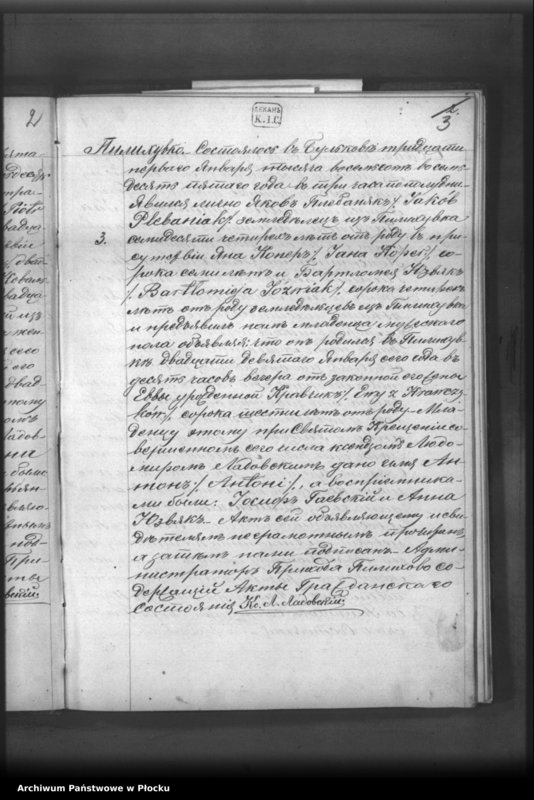 2
ДЕКАНЪ
К.I.С.
3
Состоялось въ тридцати
перваго Января тысяча восемьсотъ восемь
десятъ пятаго года въ три часа пополудни
Явился лично Яковъ Плебанякъ /: Jakób
Plebaniak :/ земледѣлецъ изъ
3.
семидесяти четырехъ лѣтъ отъ роду въ при
сутствіи Яна /: Jana :/, со
рока семи лѣтъ и Бартломея Юзвякъ
/: Bartłomieja Jóźwiak :/, сорока четырехъ
лѣтъ отъ роду земледѣльцевъ изъ
и предъявилъ намъ младенца мужескаго
пола объявляя: что онъ родился въ
двадцати девятаго Января сего года въ
десять часовъ вечера отъ законной его жены
Еввы урожденной Кравчикъ /: Ewy z Krawczy
ków :/, сорока шести лѣтъ отъ роду – Мла
денцу этому при Святомъ Крещеніи со
вершенномъ сего числа ксендзомъ Людо
миромъ Ладовскимъ дано имя Ан
тонъ /: Antoni :/, а воспріемника
ми были: Іосифъ Гаевскій и Анна
Юзвякъ – Актъ сей объявляющему и сви
дѣтелямъ неграмотнымъ прочитанъ
а затѣмъ нами подписанъ – Адми
нистраторъ Прихода со
держащій Акты Гражданскаго
состоянія Кс. Л. Ладовскій
Archiwum Państwowe w Płocku